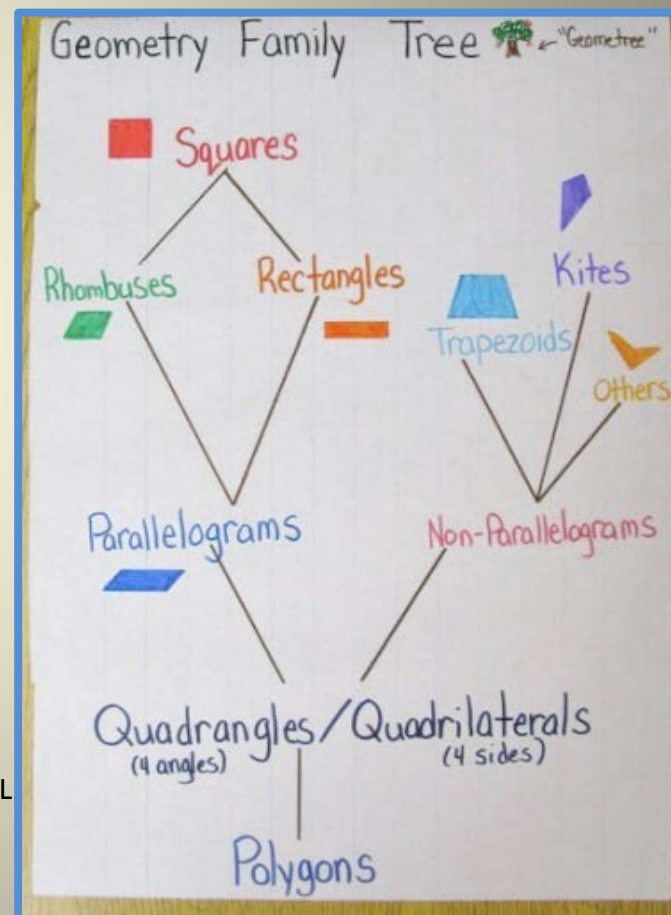 Geometry Family Tree ← "Geometree"
Squares
Rhombuses Rectangles
Kites
Trapezoids
Others
Parallelograms Non-Parallelograms
Quadrangles/Quadrilaterals
(4 angles) (4 sides)
L
Polygons